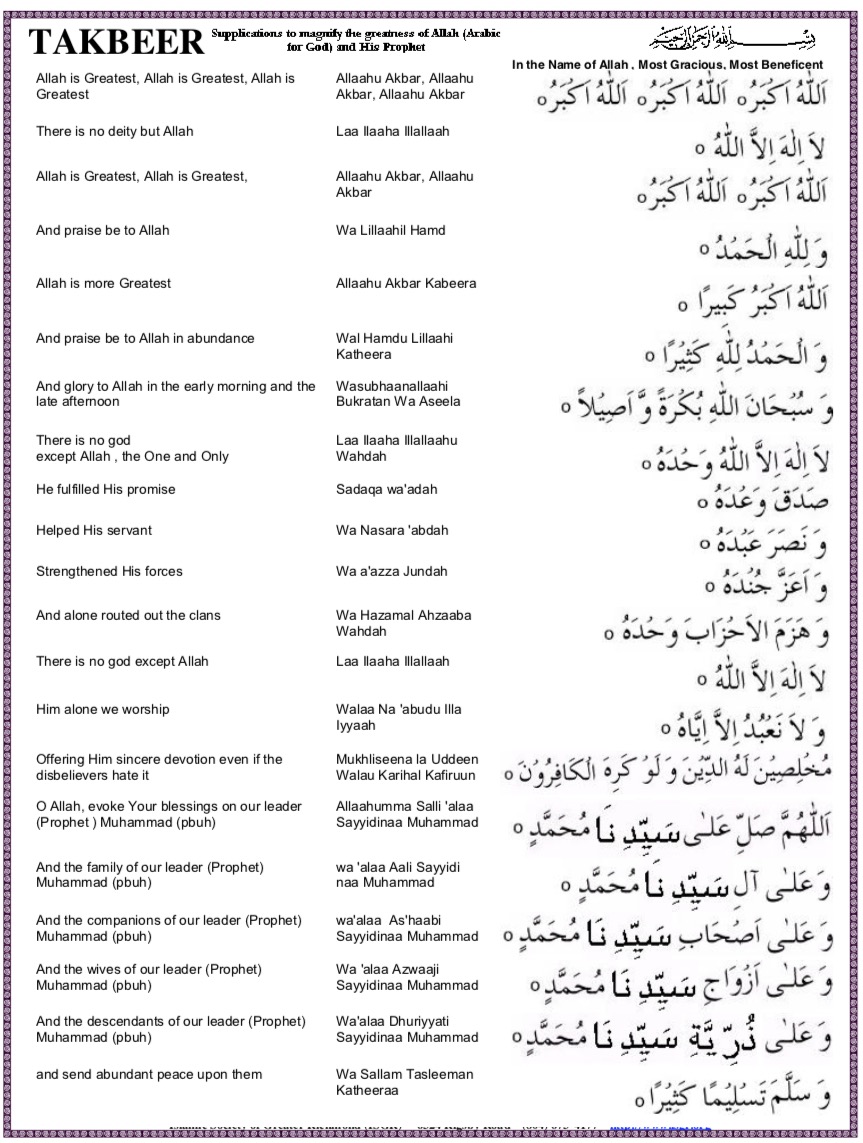 TAKBEER
Supplications to magnify the greatness of Allah (Arabic
for God) and His Prophet
In the Name of Allah , Most Gracious, Most Beneficent
Allah is Greatest, Allah is Greatest, Allah is
Greatest
Allaahu Akbar, Allaahu
Akbar, Allaahu Akbar
اَللّٰهُ اَكْبَرُ ٥ اَللّٰهُ اَكْبَرُ ٥ اَللّٰهُ اَكْبَرُ ٥
There is no deity but Allah
Laa Ilaaha Illallaah
لاَ اِلٰهَ اِلاَّ اللّٰهُ ٥
Allah is Greatest, Allah is Greatest,
Allaahu Akbar, Allaahu
Akbar
اَللّٰهُ اَكْبَرُ ٥ اَللّٰهُ اَكْبَرُ ٥
And praise be to Allah
Wa Lillaahil Hamd
وَ لِلّٰهِ الْحَمْدُ ٥
Allah is more Greatest
Allaahu Akbar Kabeera
اَللّٰهُ اَكْبَرُ كَبِيرًا ٥
And praise be to Allah in abundance
Wal Hamdu Lillaahi
Katheera
وَ الْحَمْدُ لِلّٰهِ كَثِيْرًا ٥
And glory to Allah in the early morning and the
late afternoon
Wasubhaanallaahi
Bukratan Wa Aseela
وَ سُبْحَانَ اللّٰهِ بُكْرَةً وَّ اَصِيْلاً ٥
There is no god
except Allah , the One and Only
Laa Ilaaha Illallaahu
Wahdah
لاَ اِلٰهَ اِلاَّ اللّٰهُ وَحْدَهُ ٥
He fulfilled His promise
Sadaqa wa'adah
صَدَقَ وَعْدَهُ ٥
Helped His servant
Wa Nasara 'abdah
وَ نَصَرَ عَبْدَهُ ٥
Strengthened His forces
Wa a'azza Jundah
وَ اَعَزَّ جُنْدَهُ ٥
And alone routed out the clans
Wa Hazamal Ahzaaba
Wahdah
وَ هَزَمَ الاَحْزَابَ وَحْدَهُ ٥
There is no god except Allah
Laa Ilaaha Illallaah
لاَ اِلٰهَ اِلاَّ اللّٰهُ ٥
Him alone we worship
Walaa Na 'abudu Illa
Iyyaah
وَ لاَ نَعْبُدُ اِلاَّ اِيَّاهُ ٥
Offering Him sincere devotion even if the
disbelievers hate it
Mukhliseena la Uddeen
Walau Karihal Kafiruun
مُخْلِصِيْنَ لَهُ الدِّيْنَ وَ لَوْ كَرِهَ الْكَافِرُوْنَ ٥
O Allah, evoke Your blessings on our leader
(Prophet ) Muhammad (pbuh)
Allaahumma Salli 'alaa
Sayyidinaa Muhammad
اَللّٰهُمَّ صَلِّ عَلٰى سَيِّدِ نَا مُحَمَّدٍ ٥
And the family of our leader (Prophet)
Muhammad (pbuh)
wa 'alaa Aali Sayyidi
naa Muhammad
وَ عَلٰى آلِ سَيِّدِ نَا مُحَمَّدٍ ٥
And the companions of our leader (Prophet)
Muhammad (pbuh)
wa'alaa As'haabi
Sayyidinaa Muhammad
وَ عَلٰى اَصْحَابِ سَيِّدِ نَا مُحَمَّدٍ ٥
And the wives of our leader (Prophet)
Muhammad (pbuh)
Wa 'alaa Azwaaji
Sayyidinaa Muhammad
وَ عَلٰى اَزْوَاجِ سَيِّدِ نَا مُحَمَّدٍ ٥
And the descendants of our leader (Prophet)
Muhammad (pbuh)
Wa'alaa Dhuriyyati
Sayyidinaa Muhammad
وَ عَلٰى ذُرِّ يَّةِ سَيِّدِ نَا مُحَمَّدٍ ٥
and send abundant peace upon them
Wa Sallam Tasleeman
Katheeraa
وَ سَلَّمَ تَسْلِيْمًا كَثِيْرًا ٥